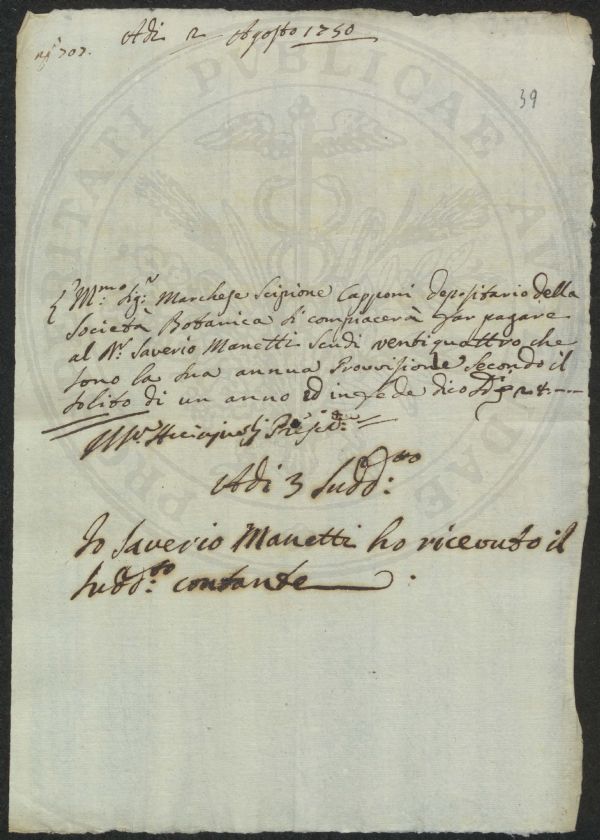 Adi 2 Agosto 1750
707.
39
Sig.r Marchese Scipione Capponi Depositario della
Società Botanica si compiacerà far pagare
al Saverio Manetti Scudi ventiquattro che
sono la sua annua Provvisione secondo il
solito di un anno ed in fede dico 24
Presid.te
Adi 3 Sudd.to
Io Saverio Manetti ho ricevuto il
Sudd.to contante
PROSPERITATI PUBLICAE AUGENDAE